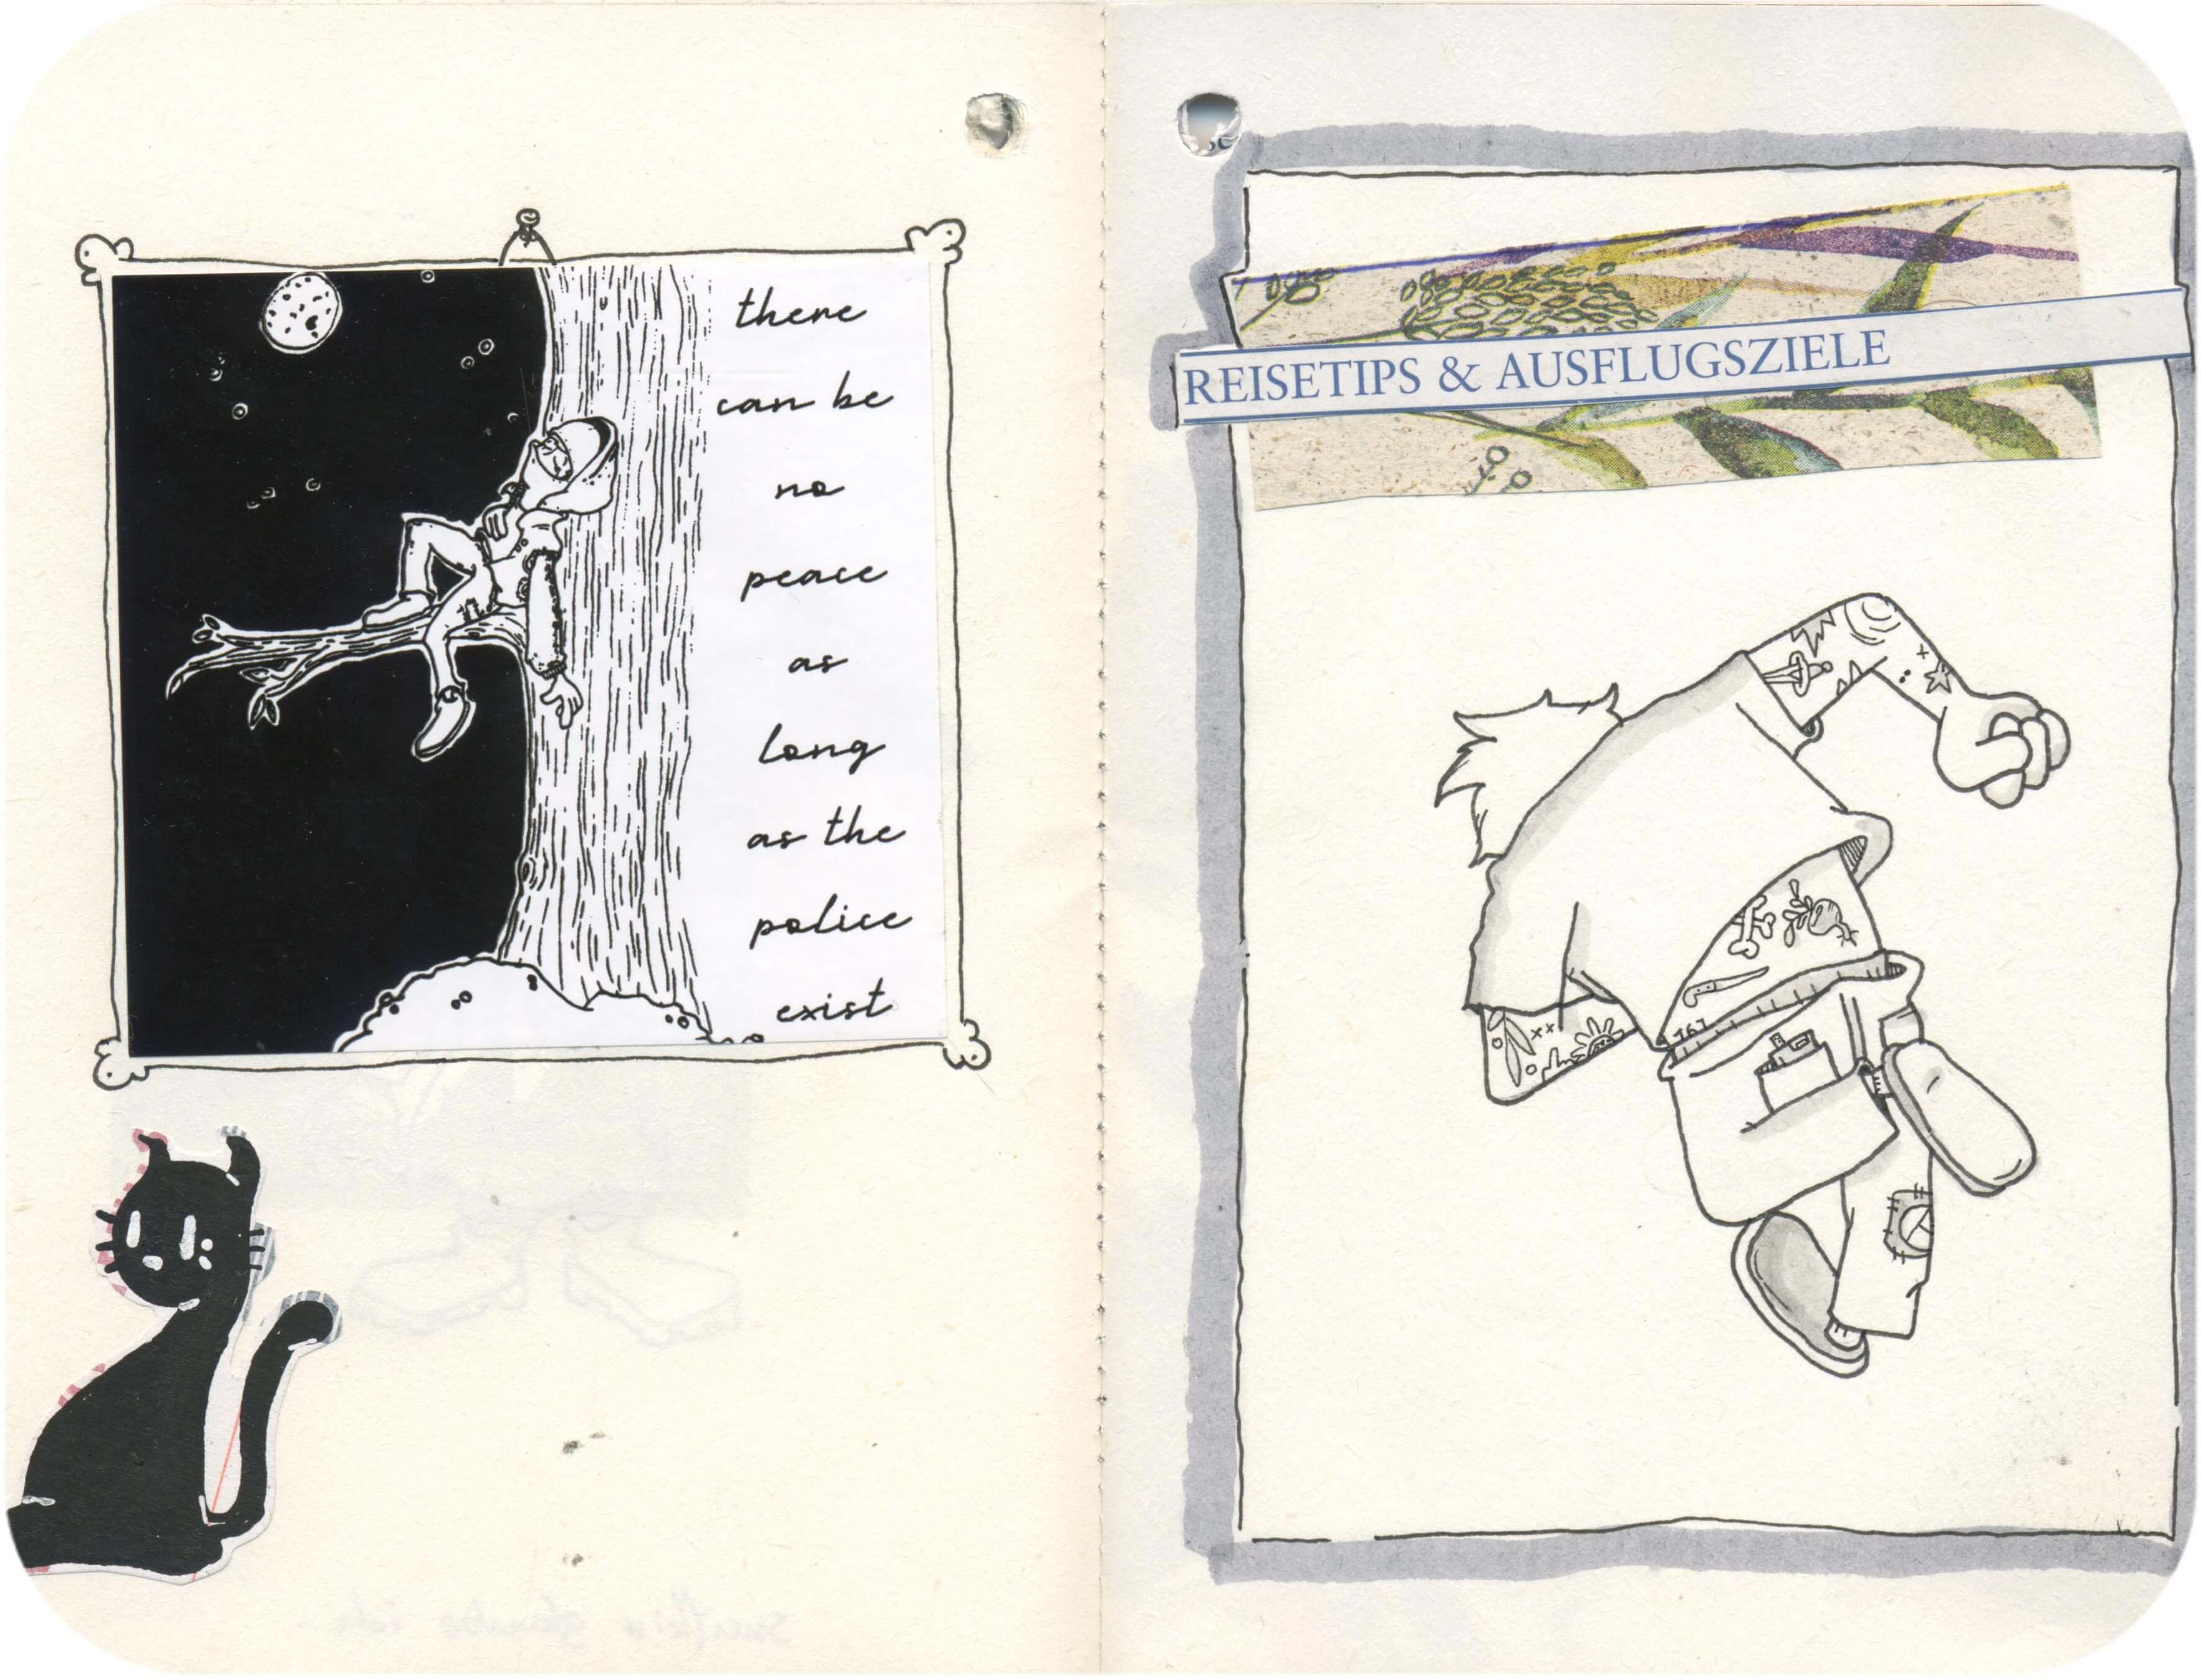 there
can be
no
peace
as
long
as the
police
exist
REISETIPS & AUSFLUGSZIELE
161